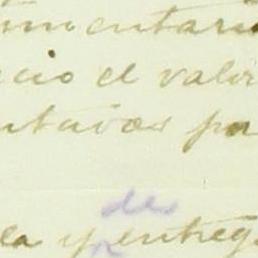 mentari
cio el valor
ntavos pa
de
la y entreg